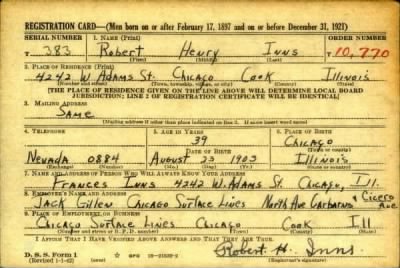 REGISTRATION CARD—(Men born on or after February 17, 1897 and on or before December 31, 1921)
SERIAL NUMBER 1. NAME (Print) ORDER NUMBER
T 383 Robert Henry Inns T 10,770
(First) (Middle) (Last)
2. PLACE OF RESIDENCE (Print)
4242 W. Adams St. Chicago Cook Illinois
(Number and street) (Town, township, village, or city) (County) (State)
[THE PLACE OF RESIDENCE GIVEN ON THE LINE ABOVE WILL DETERMINE LOCAL BOARD
JURISDICTION; LINE 2 OF REGISTRATION CERTIFICATE WILL BE IDENTICAL]
3. MAILING ADDRESS
Same
[Mailing address if other than place indicated on line 2. If same insert word same]
4. TELEPHONE 5. AGE IN YEARS 6. PLACE OF BIRTH
39 Chicago
DATE OF BIRTH (Town or county)
Nevada 0884 August 23 1903 Illinois
(Exchange) (Number) (Mo.) (Day) (Yr.) (State or country)
7. NAME AND ADDRESS OF PERSON WHO WILL ALWAYS KNOW YOUR ADDRESS
Frances Inns 4242 W. Adams St. Chicago, Ill.
8. EMPLOYER'S NAME AND ADDRESS
Jack Gillen Chicago Surface Lines North Ave Carbarns & Cicero Ave
9. PLACE OF EMPLOYMENT OR BUSINESS
Chicago Surface Lines Chicago Cook Ill
(Number and street or R. F. D. number) (Town) (County) (State)
I AFFIRM THAT I HAVE VERIFIED ABOVE ANSWERS AND THAT THEY ARE TRUE.
D. S. S. Form 1
(Revised 1-1-42) GPO 16—21630-2
Robert H. Inns